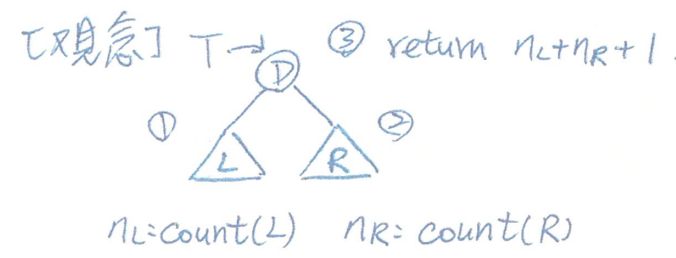 [观念] T→ ③ return nL+nR+1.
D
① ②
L R
nL=count(L) nR= count(R)